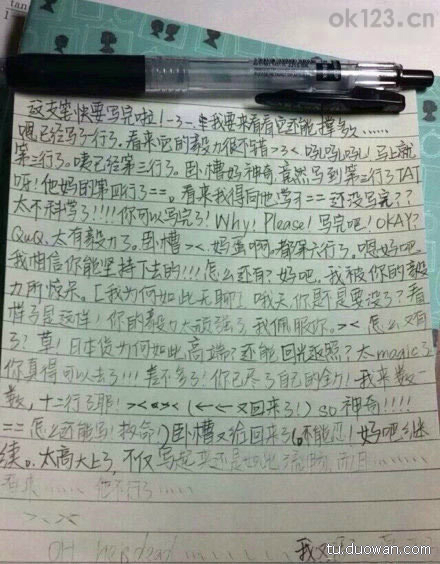 ok123.cn
这支笔快要写完啦！→3→ 我要来看看它还能撑多……
嗯已经写了一行了。看来它的毅力很不错><吼吼吼！马上就
第三行了。咦已经第三行了。卧槽好神奇竟然写到第三行TAT
呀！他妈的第四行了==。看来我得向他学习==还没写完??
太不科学了!!!!你可以写完了！Why！Please！写完吧！OKAY？
QuQ.太有毅力了。卧槽><.妈蛋啊。都第六行了。嗯好吧。
我相信你能坚持下去的!!!怎么还有？好吧。我被你的毅
力所惊呆。[我为何如此无聊]哦天你是不是要没了？看
样子是这样！你的毅力太顽强了我佩服你。><怎么又有
了？草！日本货为何如此高端？还能回光返照？太magic了
你真得可以去了!!!差不多了！你已尽了自己的全力！我来数一
数，十二行了耶！><><(←←又回来了！) so 神奇!!!!
==怎么还能写！救命！)卧槽又给回来了(不能忍！好吧.继
续。太高大上了，不仅写起来还是如此流畅，而且……
看来……他不行了……
>.><
OH he's dead 我
tu.duowan.com